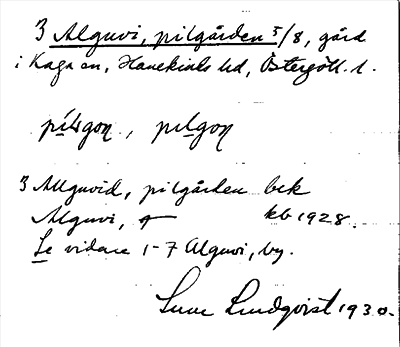 3 Alguvi, pilgården 5/8, gård
i Kaga sn, Hanekinds hd, Östergötl. l.
pilsgoɳ, pilgoɳ
3 Alguvid, pilgården bek
Alguvi, kb 1928.
Se vidare 1-7 Alguvi, by.
Sune Lindqvist 1930.